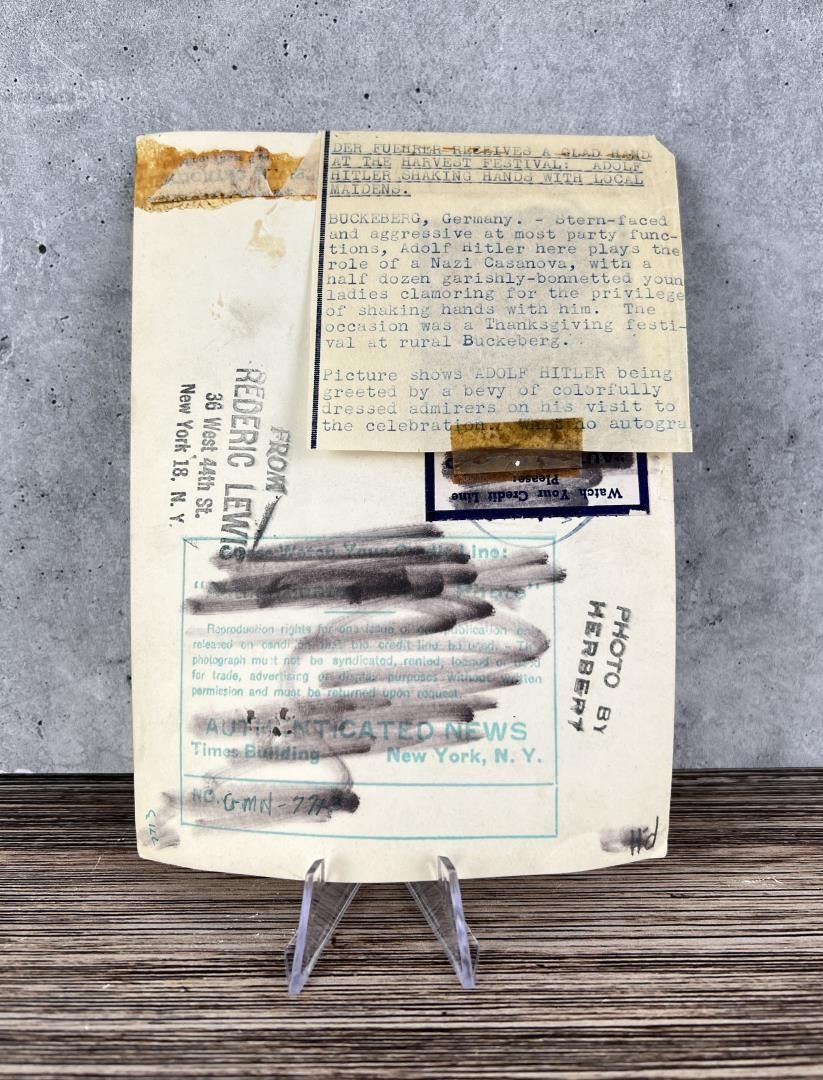 DER FUEHRER RECEIVES A GLAD HAND
AT THE HARVEST FESTIVAL: ADOLF
HITLER SHAKING HANDS WITH LOCAL
MAIDENS.
BUCKEBERG, Germany. - Stern-faced
and aggressive at most party func-
tions, Adolf Hitler here plays the
role of a Nazi Casanova, with a
half dozen garishly-bonnetted youn
ladies clamoring for the privilege
of shaking hands with him. The
occasion was a Thanksgiving festi-
val at rural Buckeberg.
Picture shows ADOLF HITLER being
greeted by a bevy of colorfully
dressed admirers on his visit to
the celebration. no autogra
FROM
REDERIC LEWIS
36 West 44th St.
New York 18, N. Y.
Please:
Watch Your Credit Line
Watch Your Credit Line:
Photo"
Reproduction rights for one issue of publication
released on condition that the credit line be used. 
photograph must not be syndicated, rented, loaned or used
for trade, advertising or display purposes without written
permission and must be returned upon request.
AUTHENTICATED NEWS
Times Building New York, N. Y.
NO. GMN-77
PHOTO BY
HERBERT